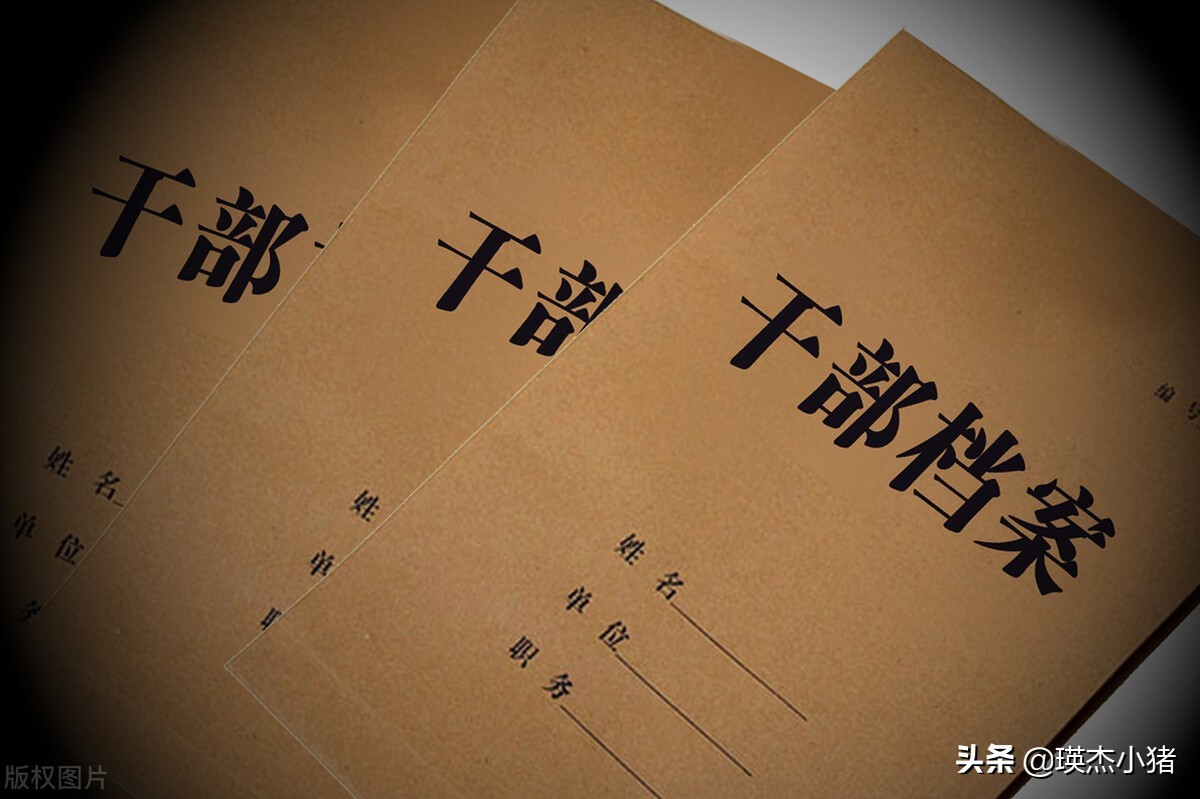 干部
姓名
单位
务
干部
姓
单
职
干部档案
编号
姓名
单位
职务
版权图片
头条 @瑛杰小猪